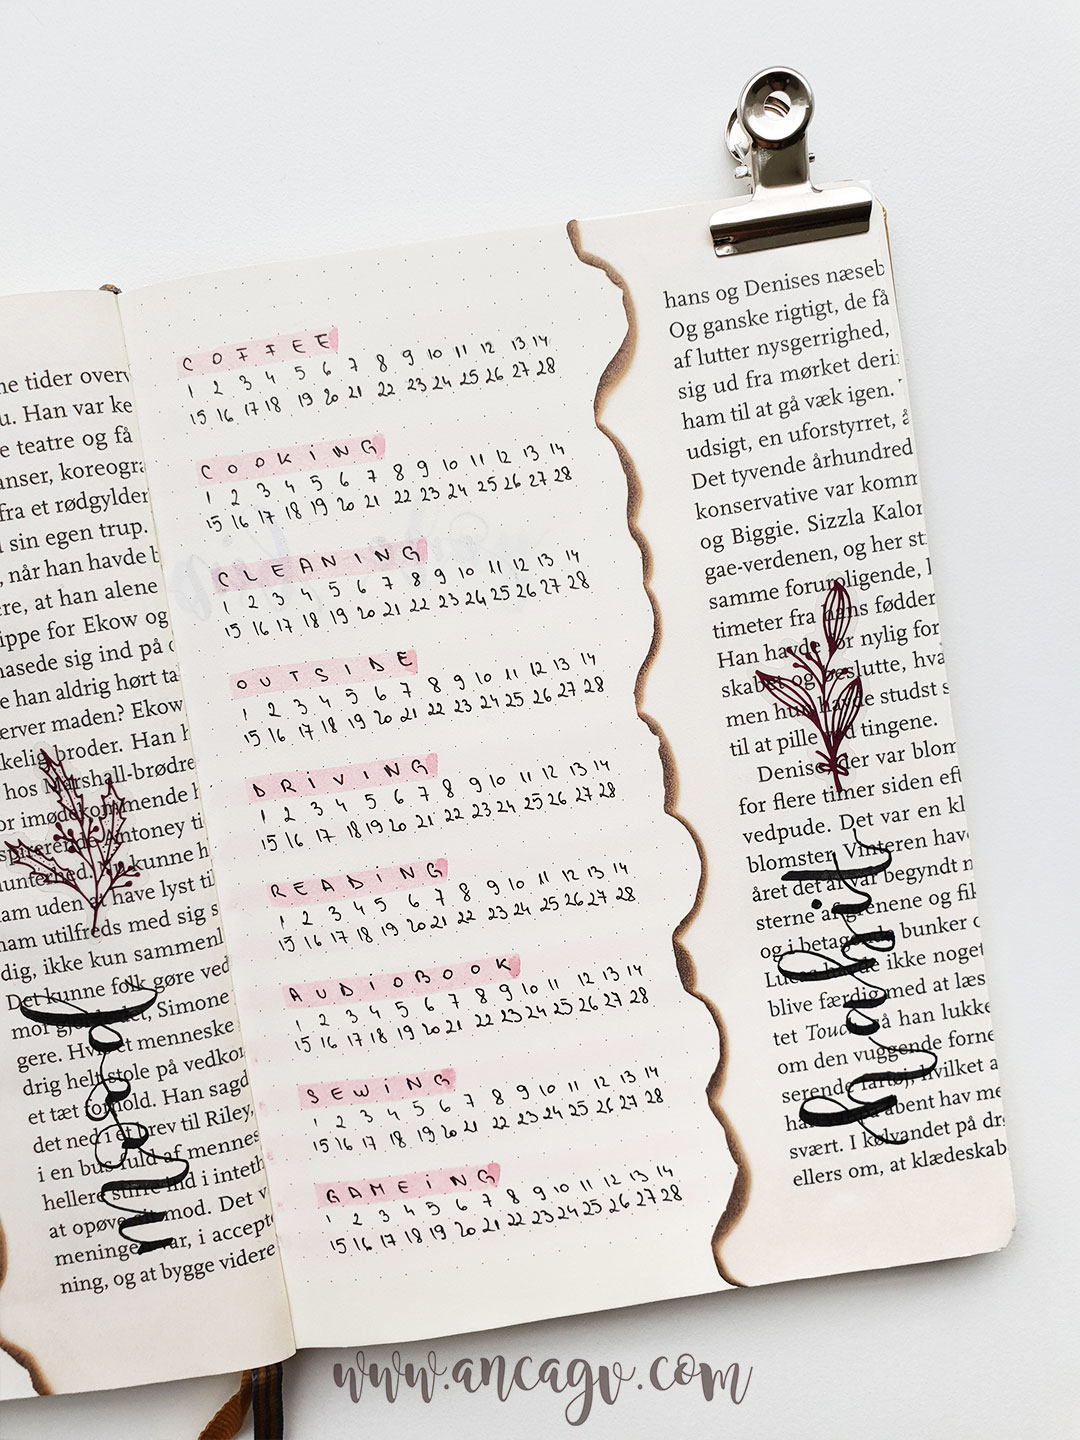 ne tider overv
u. Han var ke
e teatre og få
anser, koreogra
fra et rødgylder
l sin egen trup.
, når han havde b
ere, at han alene
ippe for Ekow og
nasede sig ind på d
e han aldrig hørt ta
erver maden? Ekow
kelig broder. Han h
hos Marshall-brødre
or imødekommende h
spirerende Antoney ti
kunne h
am uden at have lyst til
nam utilfreds med sig s
dig, ikke kun sammenl
Det kunne folk gøre ved
mor gjorde det, Simone
gere. Hvis et menneske
drig helt stole på vedkor
et tæt forhold. Han sagd
det ned i et brev til Riley,
i en bus fuld af mennes
hellere stirre ind i inteth
at opøve sit mod. Det v
meningen var, i accept
ning, og at bygge videre
COFFEE
1 2 3 4 5 6 7 8 9 10 11 12 13 14
15 16 17 18 19 20 21 22 23 24 25 26 27 28
COOKING
1 2 3 4 5 6 7 8 9 10 11 12 13 14
15 16 17 18 19 20 21 22 23 24 25 26 27 28
CLEANING
1 2 3 4 5 6 7 8 9 10 11 12 13 14
15 16 17 18 19 20 21 22 23 24 25 26 27 28
OUTSIDE
1 2 3 4 5 6 7 8 9 10 11 12 13 14
15 16 17 18 19 20 21 22 23 24 25 26 27 28
DRIVING
1 2 3 4 5 6 7 8 9 10 11 12 13 14
15 16 17 18 19 20 21 22 23 24 25 26 27 28
READING
1 2 3 4 5 6 7 8 9 10 11 12 13 14
15 16 17 18 19 20 21 22 23 24 25 26 27 28
AUDIOBOOK
1 2 3 4 5 6 7 8 9 10 11 12 13 14
15 16 17 18 19 20 21 22 23 24 25 26 27 28
SEWING
1 2 3 4 5 6 7 8 9 10 11 12 13 14
15 16 17 18 19 20 21 22 23 24 25 26 27 28
GAMEING
1 2 3 4 5 6 7 8 9 10 11 12 13 14
15 16 17 18 19 20 21 22 23 24 25 26 27 28
hans og Denises næseb
Og ganske rigtigt, de få
af lutter nysgerrighed,
sig ud fra mørket deri
ham til at gå væk igen.
udsigt, en uforstyrret, å
Det tyvende århundred
konservative var komm
og Biggie. Sizzla Kalor
gae-verdenen, og her st
samme forunoligende, l
timeter fra hans fødder
Han havde for nylig for
skabet og beslutte, hva
men hun havde studst s
til at pille ved tingene.
Denise der var blom
for flere timer siden eft
vedpude. Det var en kl
blomster. Vinteren hav
året det at var begyndt n
sterne af grenene og fik
og i betagende bunker o
Lucas havde ikke noget
blive færdig med at læs
tet så han lukke
om den vuggende forne
serende fartøj, hvilket a
åbent hav me
svært. I kølvandet på dr
ellers om, at klædeskab
www.ancagv.com